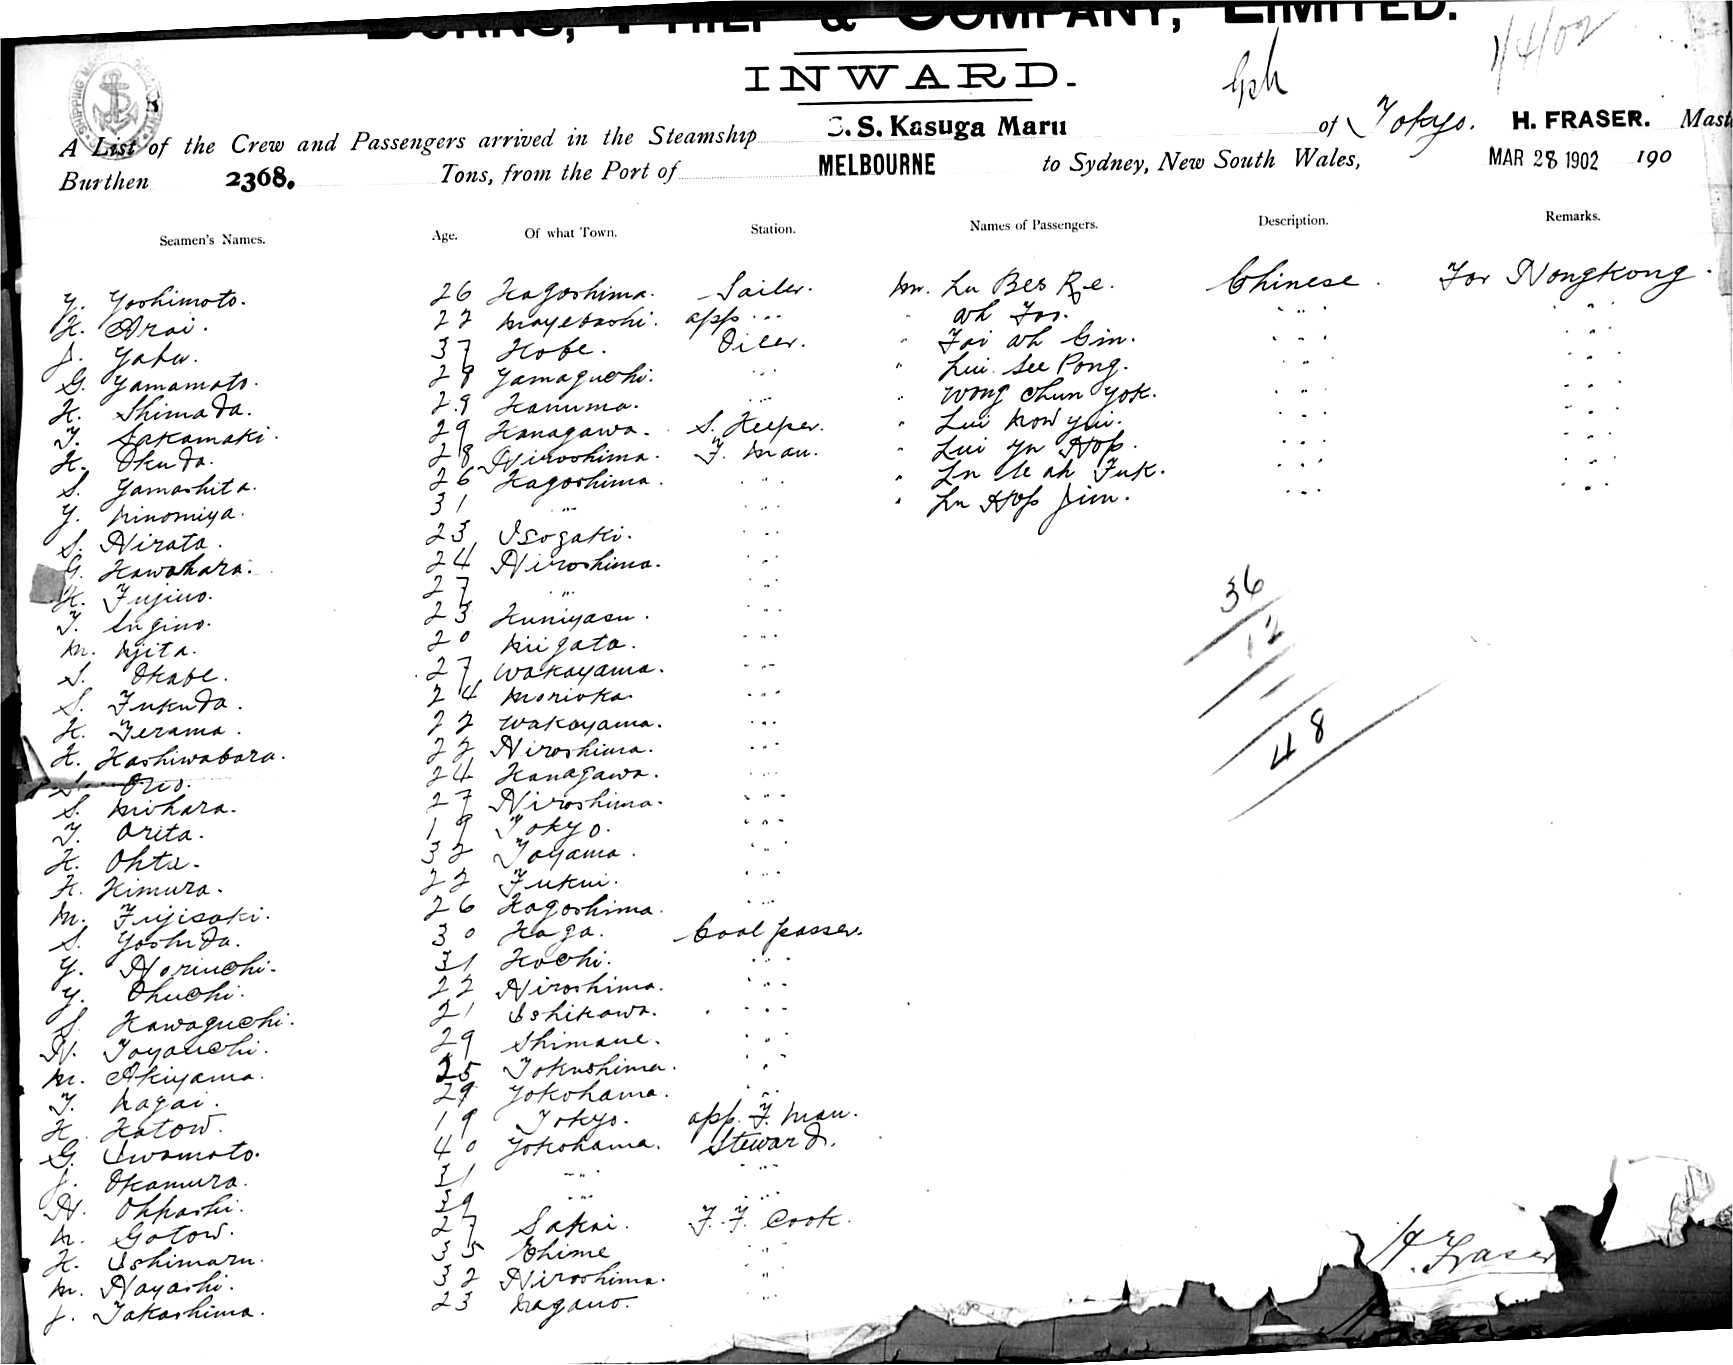 BURNS, PHILP & COMPANY, LIMITED.
1/4/02
INWARD.
A List of the Crew and Passengers arrived in the Steamship S. S. Kasuga Maru of Tokyo. H. FRASER. Mast
Burthen 2368. Tons, from the Port of MELBOURNE to Sydney, New South Wales, MAR 28 1902 190
Seamen's Names. Age. Of what Town. Station. Names of Passengers. Description. Remarks.
Y. Yoshimoto. 26 Kagoshima. Sailer. Mr. Lu Bes Chinese. For Hongkong.
K. Arai. 22 Mayebashi. app " " " Ah " " " " " "
J. Yabu. 37 Kobe. Oiler. " Fai Ah Gin. " " " " " "
G. Yamamoto. 28 Yamaguchi. " " " " Lui See Pong. " " " " " "
K. Shimada. 29 Kanuma. " " " " Wong Chun Yok. " " " " " "
T. Sakamaki. 29 Kanagawa. S. Keeper. " Lui Kow Yui. " " " " " "
K. Okuda. 28 Hiroshima. F. Man. " Lui Yu Hop. " " " " " "
S. Yamashita. 26 Kagoshima. " " " " Ah Fuk. " " " " " "
Y. Ninomiya. 31 " " " Lu Hop Jim. " " " " " "
S. Hirata. 23 Isogaki. " " "
G. Kawahara. 24 Hiroshima. " " "
K. Fujino. 27 " " " " "
T. Sugino. 23 Kuniyasu. " " "
M. Njita. 20 Niigata. " " "
S. Okabe. 27 Wakayama. " " "
S. Fukuda. 24 Morioka. " " "
K. Terama. 22 Wakayama. " " "
K. Kashiwabara. 22 Hiroshima. " " "
S. Orio. 24 Kanagawa. " " "
S. Mihara. 27 Hiroshima. " " "
T. Orita. 19 Tokyo. " " "
K. Ohta. 32 Toyama. " " "
K. Kimura. 22 Fukui. " " "
M. Fujisaki. 26 Kagoshima. " " "
S. Yoshida. 30 Kaga. Coal passer.
Y. Horiuchi. 31 Kochi. " " "
Y. Ohuchi. 22 Hiroshima. " " "
S. Kawaguchi. 21 Ishikawa. " " "
H. Toyouchi. 29 Shimane. " " "
M. Akiyama. 25 Tokushima. "
T. Nagai. 29 Yokohama. " "
K. Katow. 19 Tokyo. app. F. Man.
G. Iwamoto. 40 Yokohama. Steward.
J. Okamura. 31 " " " "
H. Ohhashi. 39 " " " "
N. Gotow. 27 Sakai. F. F. Cook.
K. Ishimaru. 35 Ehime " "
M. Hayashi. 32 Hiroshima. "
J. Takashima. 23 Nagano. "
36
12
48
H. Fraser